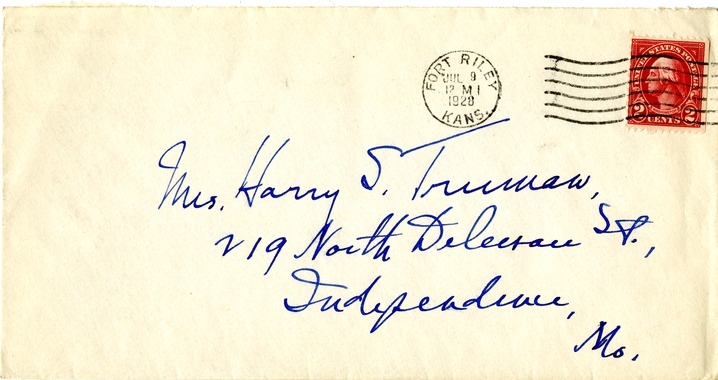 FORT RILEY
JUL 9
12 M
1928
KANS.
UNITED STATES POSTAGE
2 CENTS 2
Mrs. Harry S. Truman,
219 North Delaware St.,
Independence,
Mo.